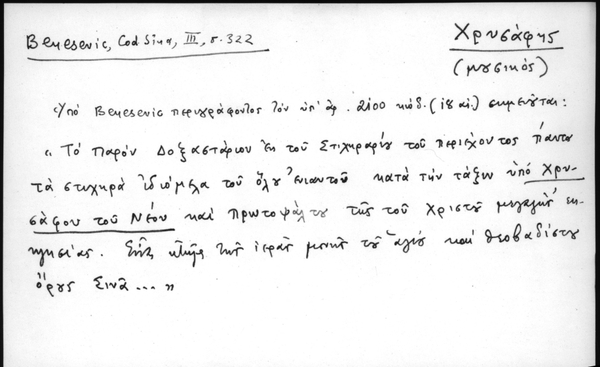 Benesevic, Cod Sina, III, σ. 322
Χρυσάφης
(μουσικός)
Ὑπό Benesevic περιγράφοντος τόν ὑπ' ἀρ. 2100 κώδ. (ιβ αἰ.) σημειοῦται:
"Τό παρόν Δοξαστάριον ἐκ τοῦ Στιχηραρίου τοῦ περιέχοντος πάντα
τά στιχηρά ἰδιόμελα τοῦ ὅλου ἐνιαυτοῦ κατά τήν τάξιν ὑπό Χρυ-
σάφου τοῦ Νέου καί πρωτοψάλτου τῆς τοῦ Χριστοῦ μεγάλης ἐκ-
κλησίας. κτῆμα τῆς ἱερᾶς μονῆς τοῦ ἁγίου καί θεοβαδίστου
ὄρους Σινᾶ ... "